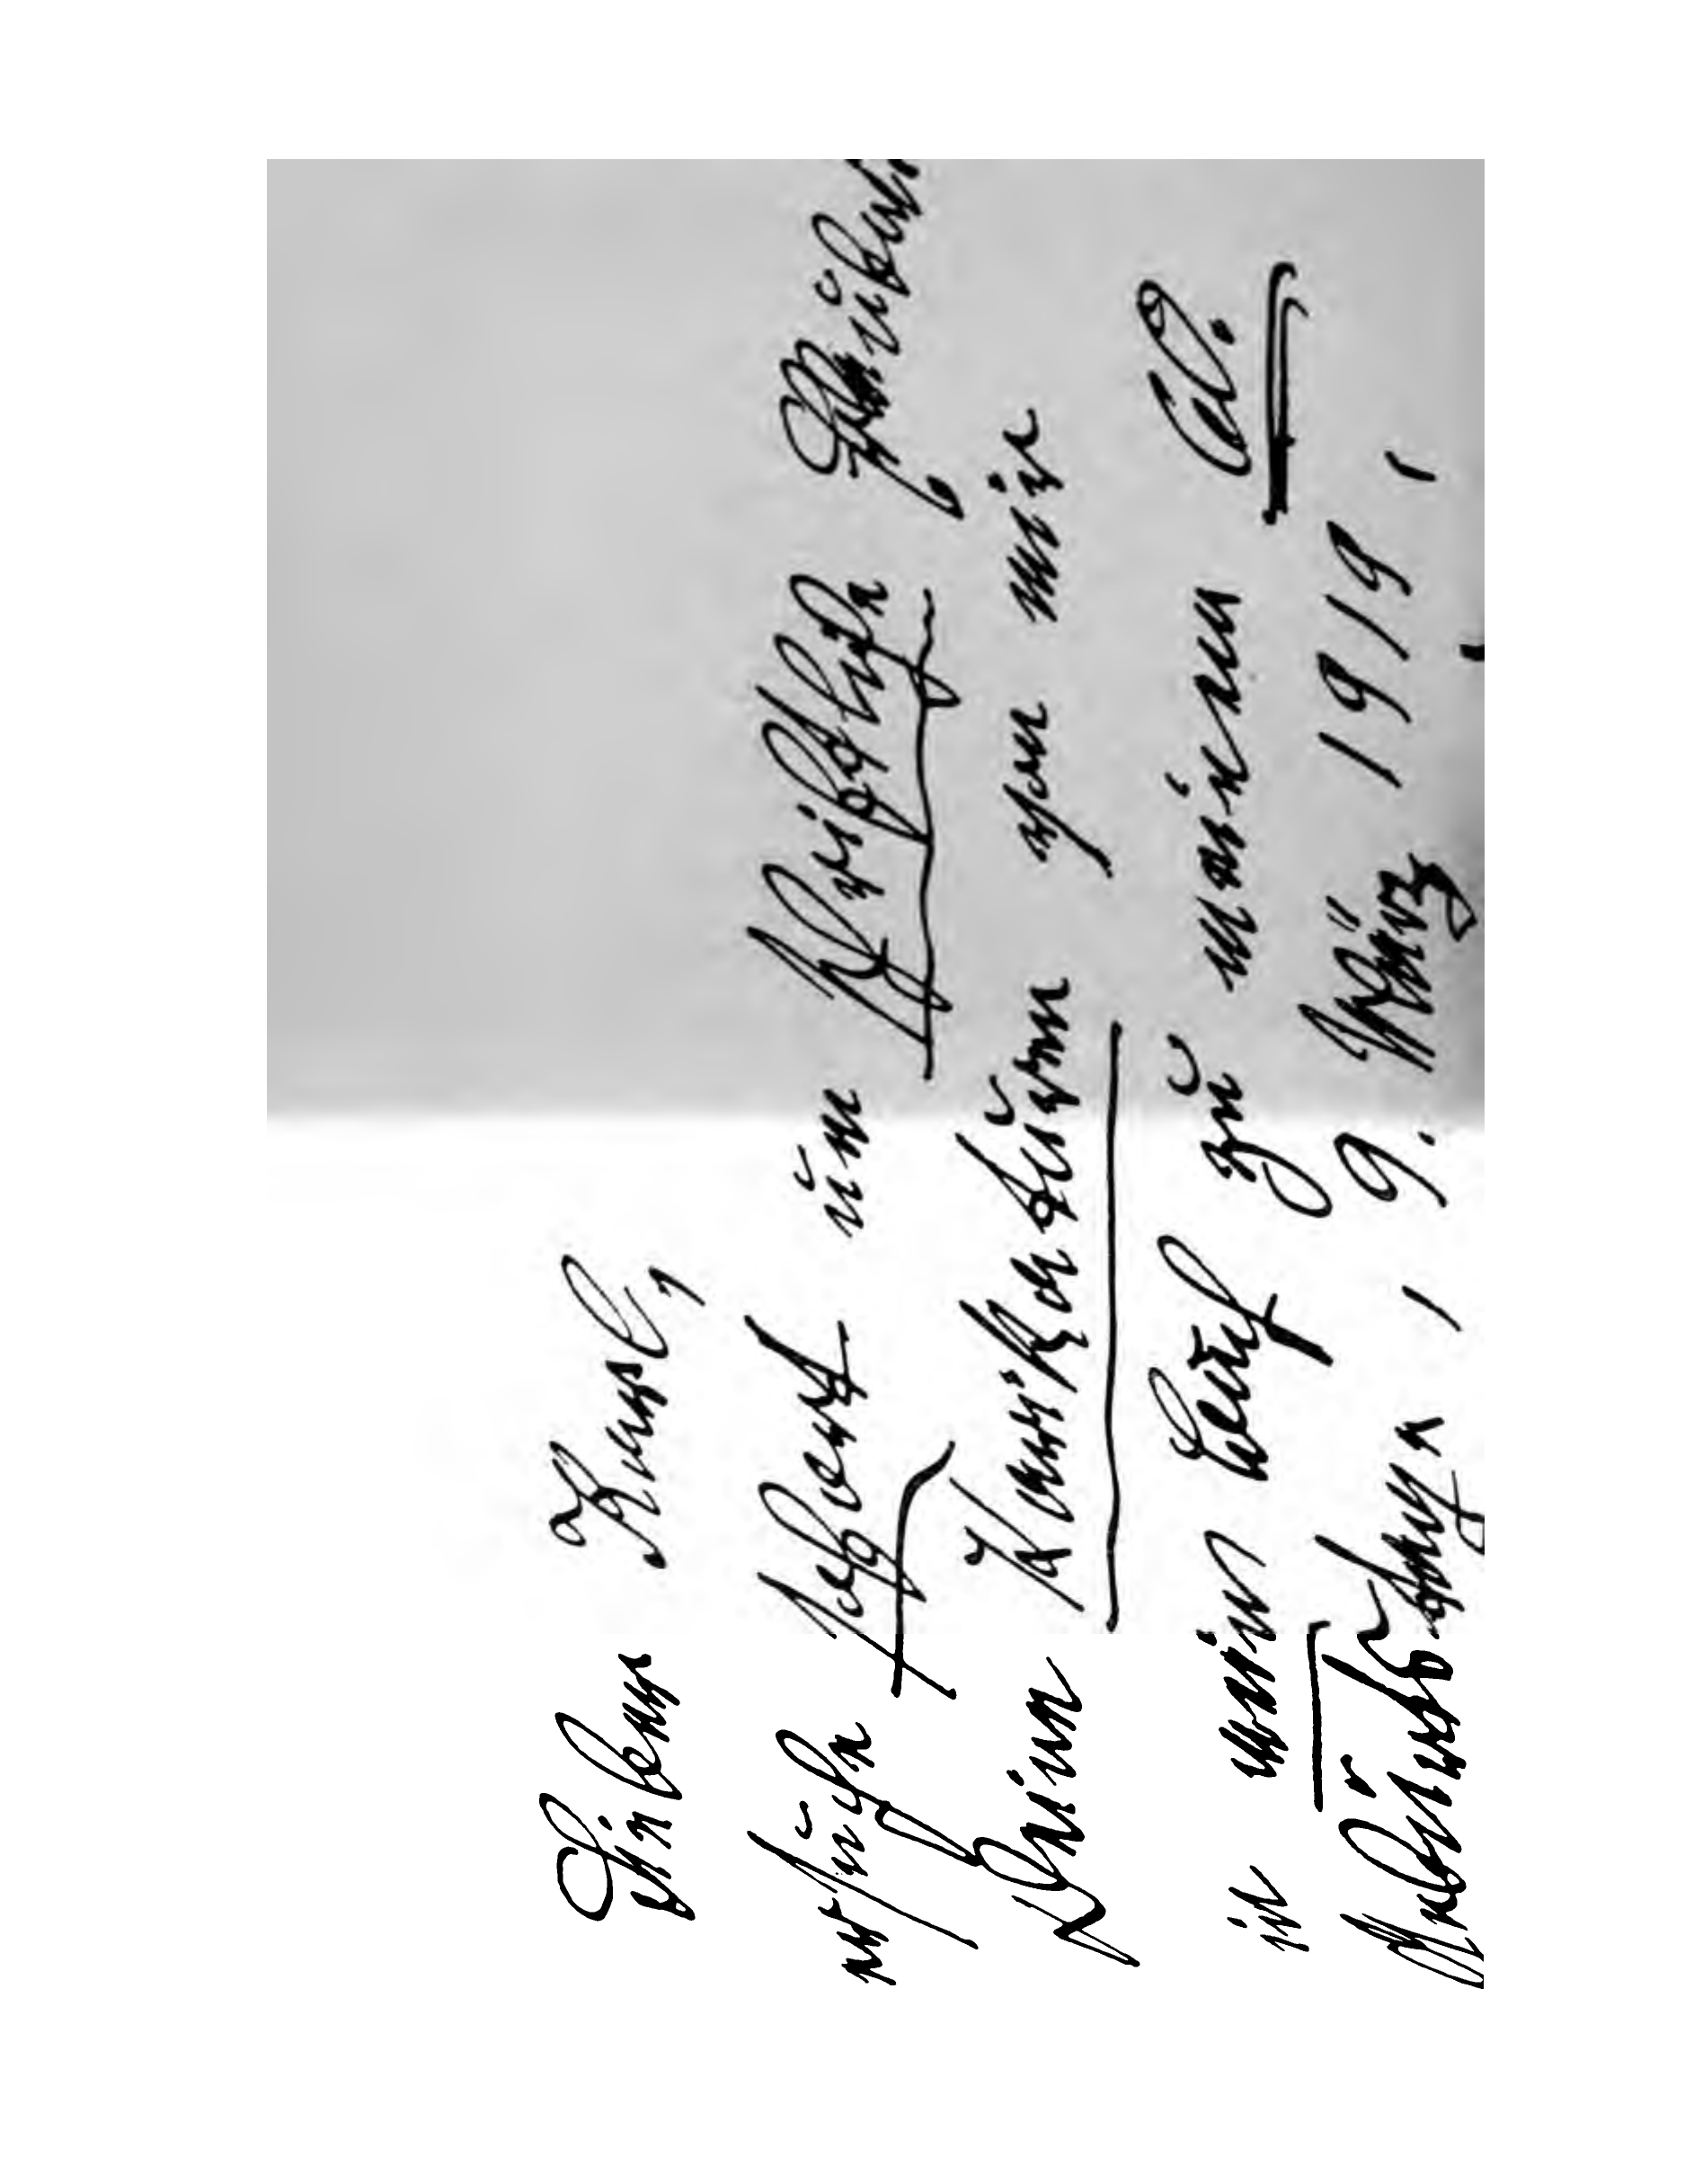 Lieber
ersuche sofort um schriftliche
Deiner Karikaturen von mir
in mein Buch zu meinem 60.
Geburtstage, 9. März 1919,